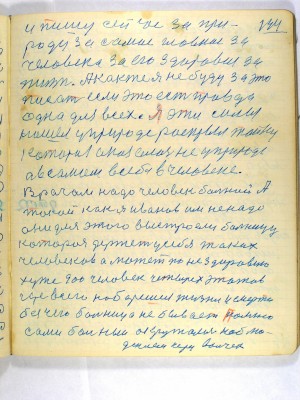 144
и пишу сейчас за при-
роду за самое главное за
человека за его здоровье за
жизнь. А как же я не буду за это
писать если это ест правда
одна для всех. Я эти силы
нашел у природе раскрыл тайну
которая оказалас не у природе
а в самом в себе в человеке.
Врачам надо человек болний А
такой как я иванов им не надо
они для этого выстроели болницу
которая держит у себя таких
человеков а может по нездоровию
хуже 900 человек четырех этажов
через всего наберешся жизни и смерти
без чего болница не бывает только
сами болныи окружаися